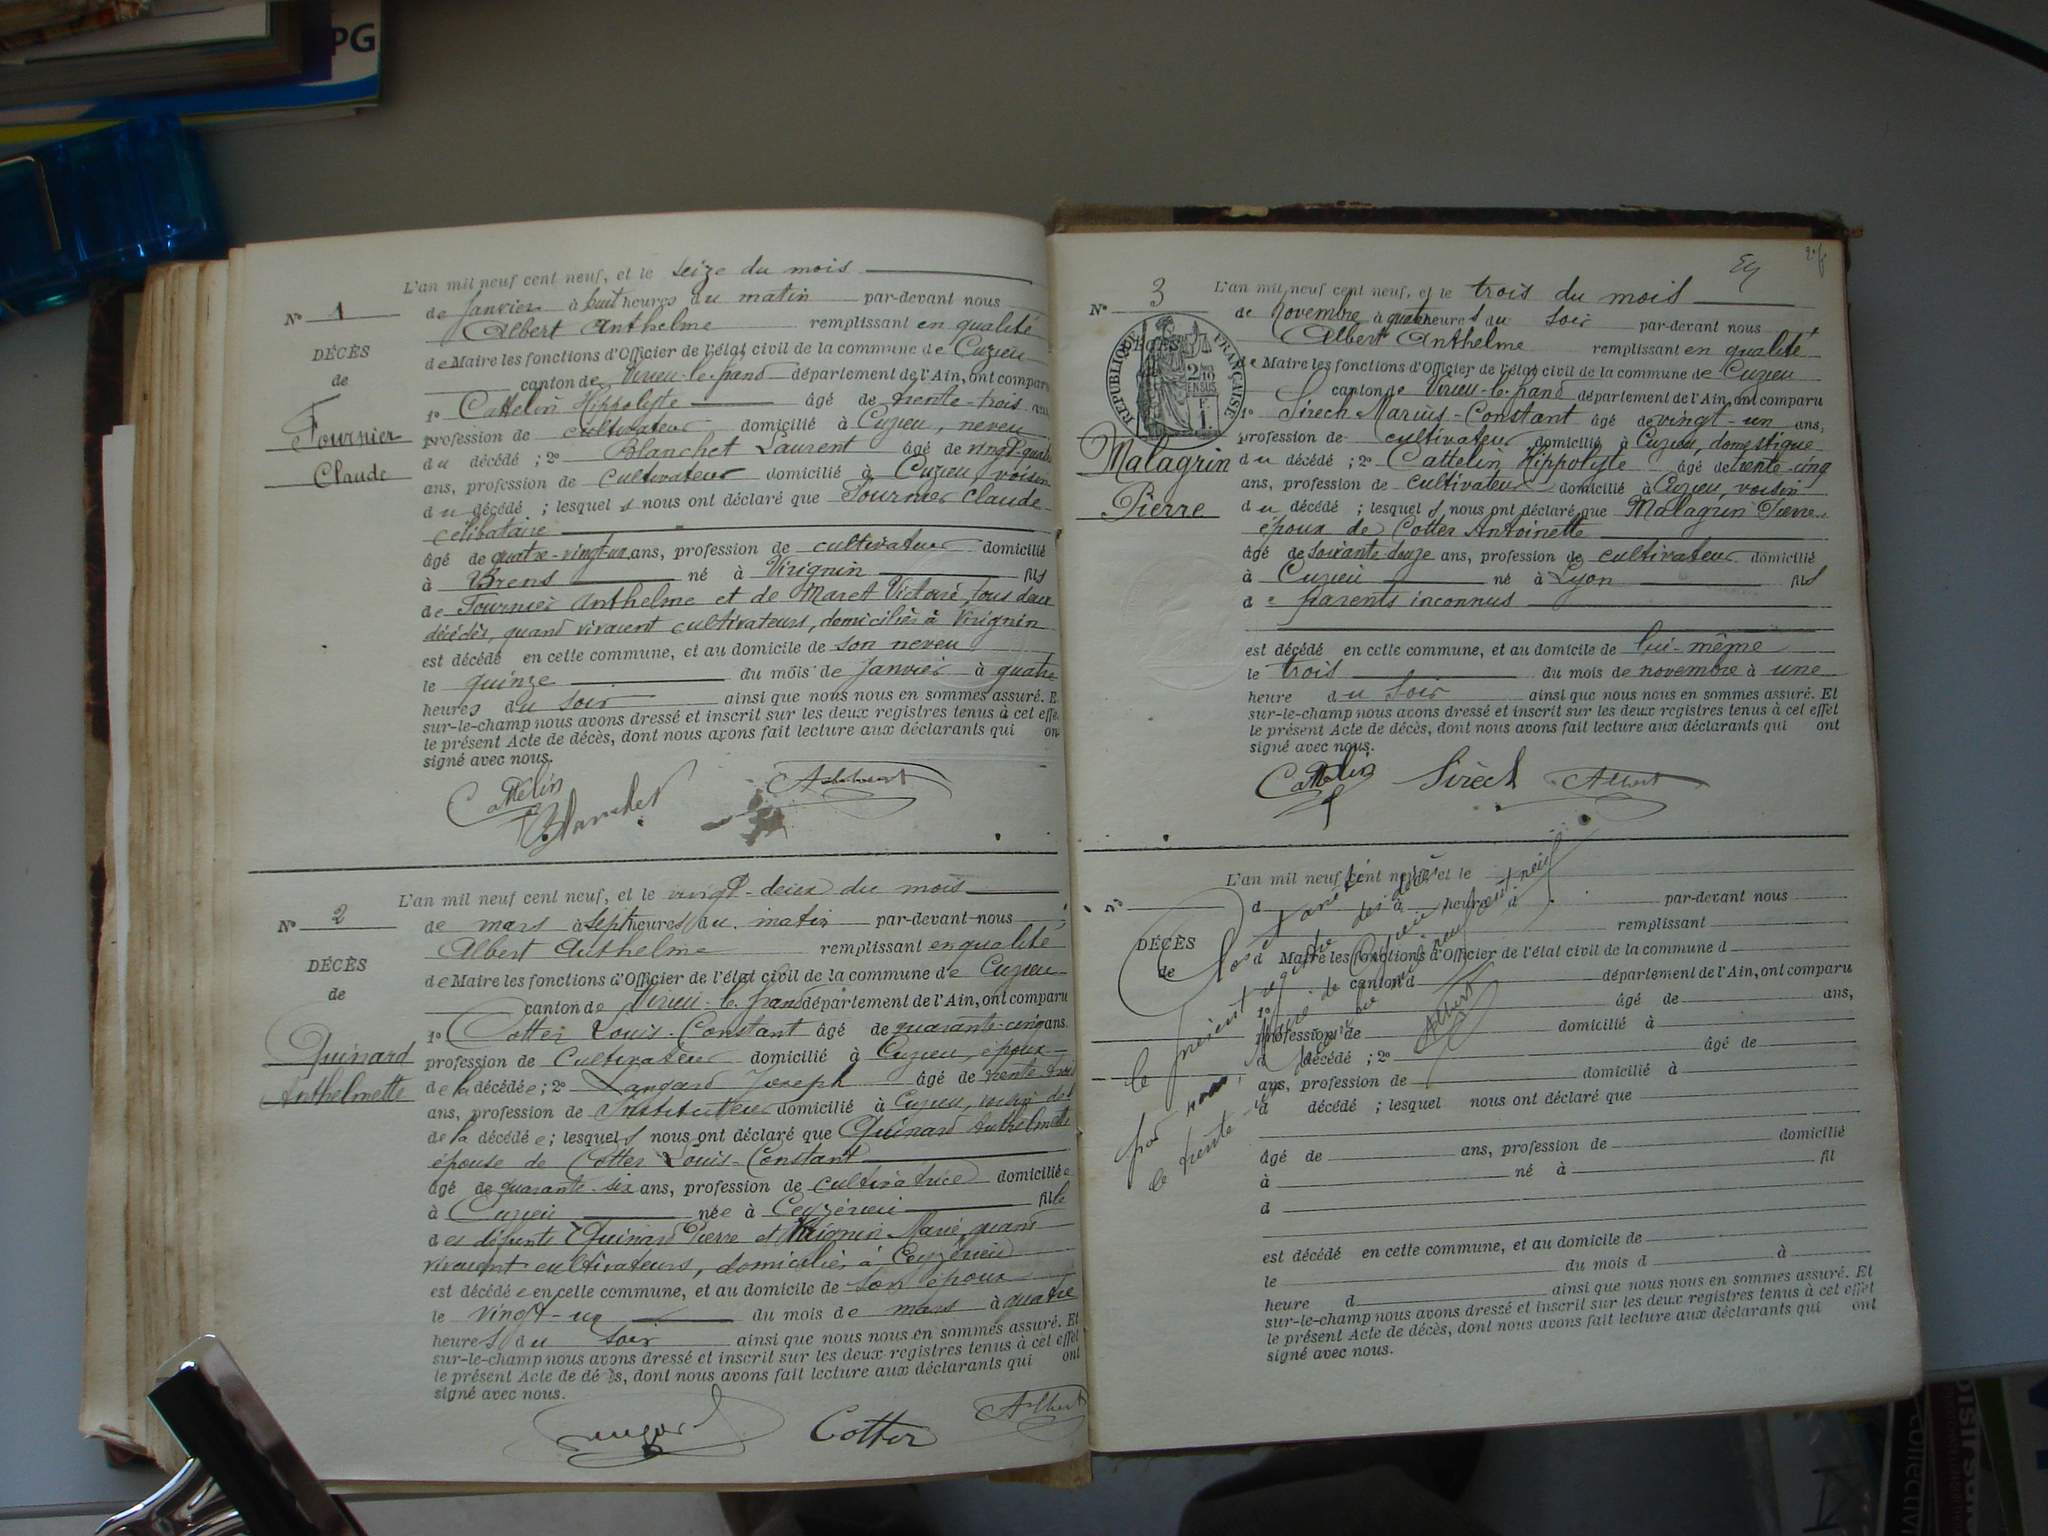 PG
L'an mil neuf cent neuf, et le seize du mois
N° 1 de Janvier à huit heures du matin par-devant nous
Albert Anthelme remplissant en qualité
DÉCÈS
de
Fournier
Claude
de Maire les fonctions d'Officier de l'état civil de la commune de Cuzieu
canton de Virieu-le-grand département de l'Ain, ont comparu
1° Cattelin Hippolyte âgé de trente-trois ans
profession de cultivateur domicilié à Cuzieu, neveu
du décédé ; 2° Blanchet Laurent âgé de vingt-quatre
ans, profession de cultivateur domicilié à Cuzieu, voisin
du décédé ; lesquels nous ont déclaré que Fournier Claude
célibataire
âgé de quatre-vingt-un ans, profession de cultivateur domicilié
à Brens né à Virignin fils
de Fournier Anthelme et de Maret Victoire, tous deux
décédés, quand vivaient cultivateurs, domiciliés à Virignin
est décédé en cette commune, et au domicile de son neveu
le quinze du mois de Janvier à quatre
heures du soir ainsi que nous nous en sommes assuré. E
sur-le-champ nous avons dressé et inscrit sur les deux registres tenus à cet effe
le présent Acte de décès, dont nous avons fait lecture aux déclarants qui on
signé avec nous.
Cattelin
Blanchet
Albert
L'an mil neuf cent neuf, et le vingt-deux du mois
N° 2 de mars à sept heures du matin par-devant nous
Albert Anthelme remplissant en qualité
DÉCÈS
de
Quinard
Anthelmette
de Maire les fonctions d'Officier de l'état civil de la commune de Cuzieu
canton de Virieu-le-grand département de l'Ain, ont comparu
1° Cotter Louis-Constant âgé de quarante-cinq ans
profession de Cultivateur domicilié à Cuzieu, époux
de la décédée ; 2° Langard Joseph âgé de trente-trois
ans, profession de Instituteur domicilié à Cuzieu, voisin
de la décédée ; lesquels nous ont déclaré que Quinard Anthelmette
épouse de Cotter Louis-Constant
âgé de quarante-six ans, profession de cultivatrice domiciliée
à Cuzieu née à Ceyzérieu fille
des défunts Quinard Pierre et Virignin Marie, quand
vivaient cultivateurs, domiciliés à Ceyzérieu
est décédée en cette commune, et au domicile de son époux
le vingt-un du mois de mars à quatre
heures du soir ainsi que nous nous en sommes assuré. Et
sur-le-champ nous avons dressé et inscrit sur les deux registres tenus à cet effet
le présent Acte de décès, dont nous avons fait lecture aux déclarants qui ont
signé avec nous.
Cotter
Albert
L'an mil neuf cent neuf, et le trois du mois
N° 3 de Novembre à quatre heures du soir par-devant nous
Albert Anthelme remplissant en qualité
RÉPUBLIQUE FRANÇAISE
Malagrin
Pierre
de Maire les fonctions d'Officier de l'état civil de la commune de Cuzieu
canton de Virieu-le-grand département de l'Ain, ont comparu
1° Sirech Marius-Constant âgé de vingt-un ans,
profession de cultivateur domicilié à Cuzieu, domestique
du décédé ; 2° Cattelin Hippolyte âgé de trente-cinq
ans, profession de cultivateur domicilié à Cuzieu, voisin
du décédé ; lesquels nous ont déclaré que Malagrin Pierre
époux de Cotter Antoinette
âgé de soixante-douze ans, profession de cultivateur domicilié
à Cuzieu né à Lyon fils
de parents inconnus
est décédé en cette commune, et au domicile de lui-même
le trois du mois de novembre à une
heure du soir ainsi que nous nous en sommes assuré. Et
sur-le-champ nous avons dressé et inscrit sur les deux registres tenus à cet effet
le présent Acte de décès, dont nous avons fait lecture aux déclarants qui ont
signé avec nous.
Cattelin Sirech Albert
L'an mil neuf cent neuf, et le
N° d à heure d par-devant nous
remplissant
DÉCÈS
de
d Maire les fonctions d'Officier de l'état civil de la commune d
canton d département de l'Ain, ont comparu
1° âgé de ans,
profession de domicilié à
d décédé ; 2° âgé de
ans, profession de domicilié à
d décédé ; lesquel nous ont déclaré que
âgé de ans, profession de domicilié
à né à fil
d
est décédé en cette commune, et au domicile de
le du mois d à
heure d ainsi que nous nous en sommes assuré. Et
sur-le-champ nous avons dressé et inscrit sur les deux registres tenus à cet effet
le présent Acte de décès, dont nous avons fait lecture aux déclarants qui ont
signé avec nous.
Clos
le présent registre
par nous, Maire de Cuzieu
le trente-un
Albert